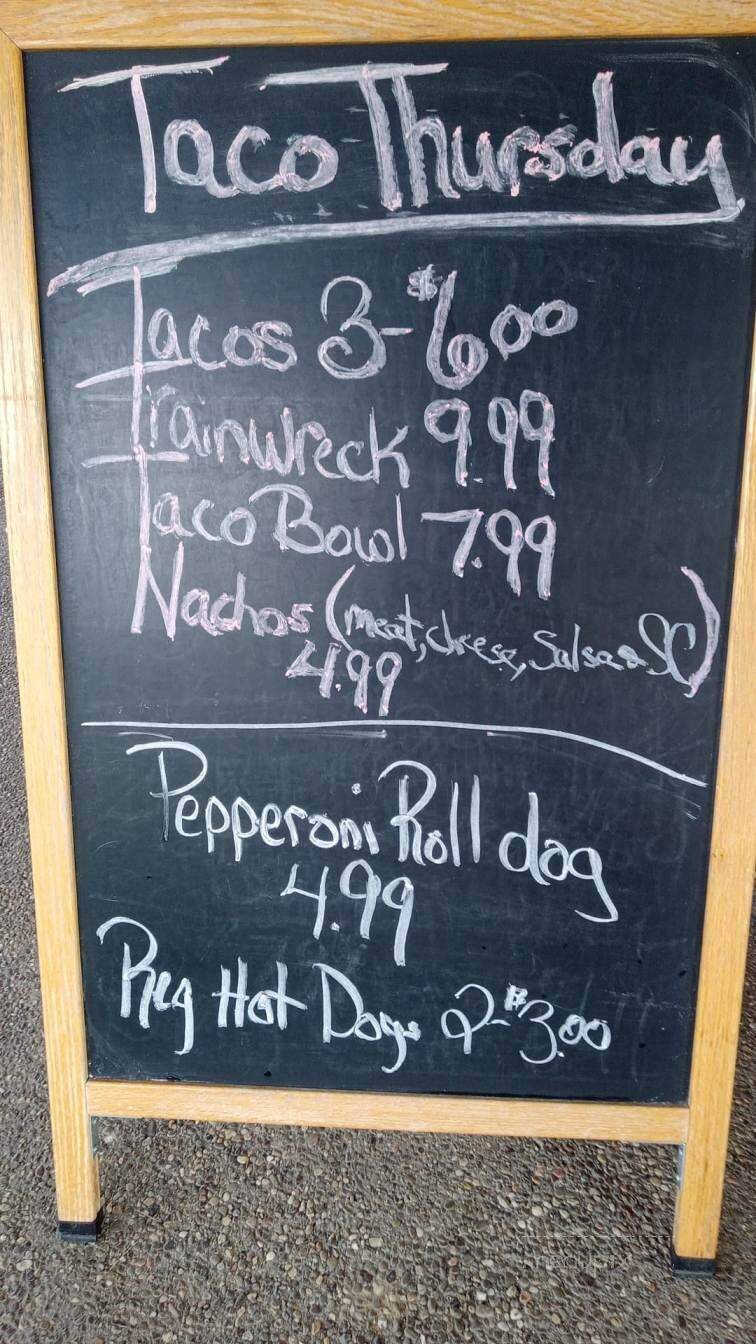 Taco Thursday
Tacos 3-$6.00
Trainwreck 9.99
Taco Bowl 7.99
Nachos (meat, cheese, Salsa & SC)
4.99
Pepperoni Roll dog
4.99
Reg Hot Dogs 2-$3.00